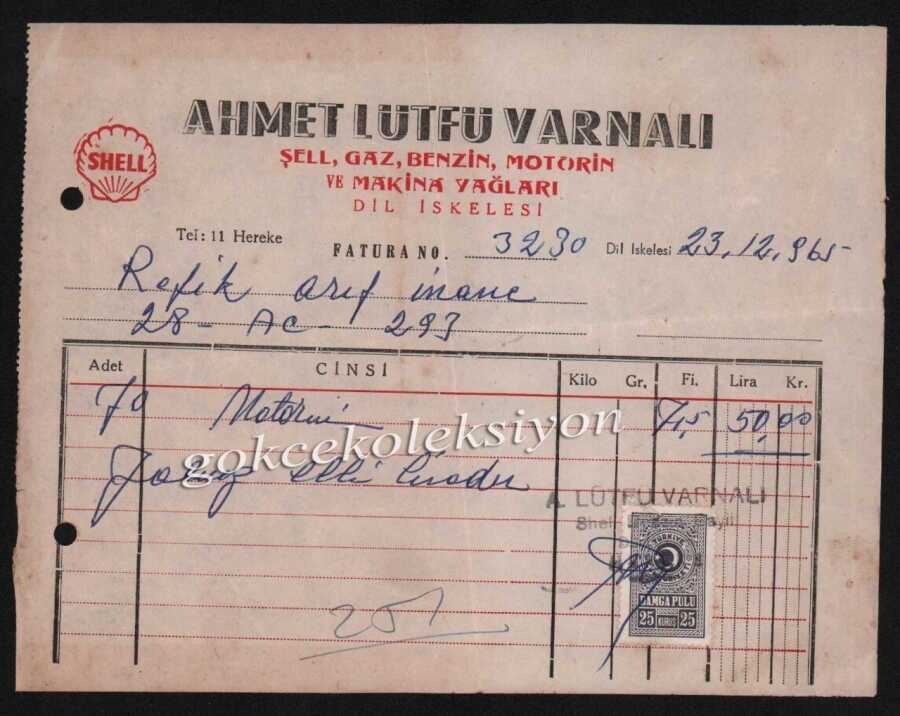 AHMET LÜTFÜ VARNALI
SHELL
ŞELL, GAZ, BENZİN, MOTORİN
VE MAKİNA YAĞLARI
DİL İSKELESİ
Tel: 11 Hereke
FATURA NO. 3230
Dil İskelesi 23.12.965
Refik Arif inanc
28 - AC - 293
Adet CİNSİ Kilo Gr. Fi. Lira Kr.
70 Motorin 7,5 50,00
gokcekoleksiyon
Yalnız elli liradır
A. LÜTFÜ VARNALI
Shell
TÜRKİYE
DAMGA PULU
25 KURUŞ 25
251